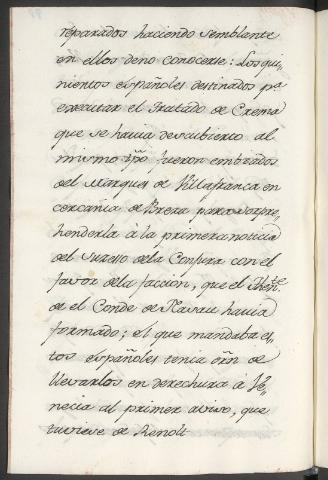 reparados haciendo semblante
en ellos deno conocerse: Los qui-
nientos españoles destinados pª
executar el tratado de Crema
que se havia descubierto al
mismo tpo fueron embiados
del Marques de Villafranca en
cercañia de Brera para sorpre-
henderla à la primera noticia
del suceso dela Conjura con el
favor dela faccion, que el Then.te
de el Conde de Nasau havia
formado; el que mandaba es-
tos españoles tenia orñ de
llevarlos en derechura à Ve-
necia al primer aviso, que
tuviese de Renolt